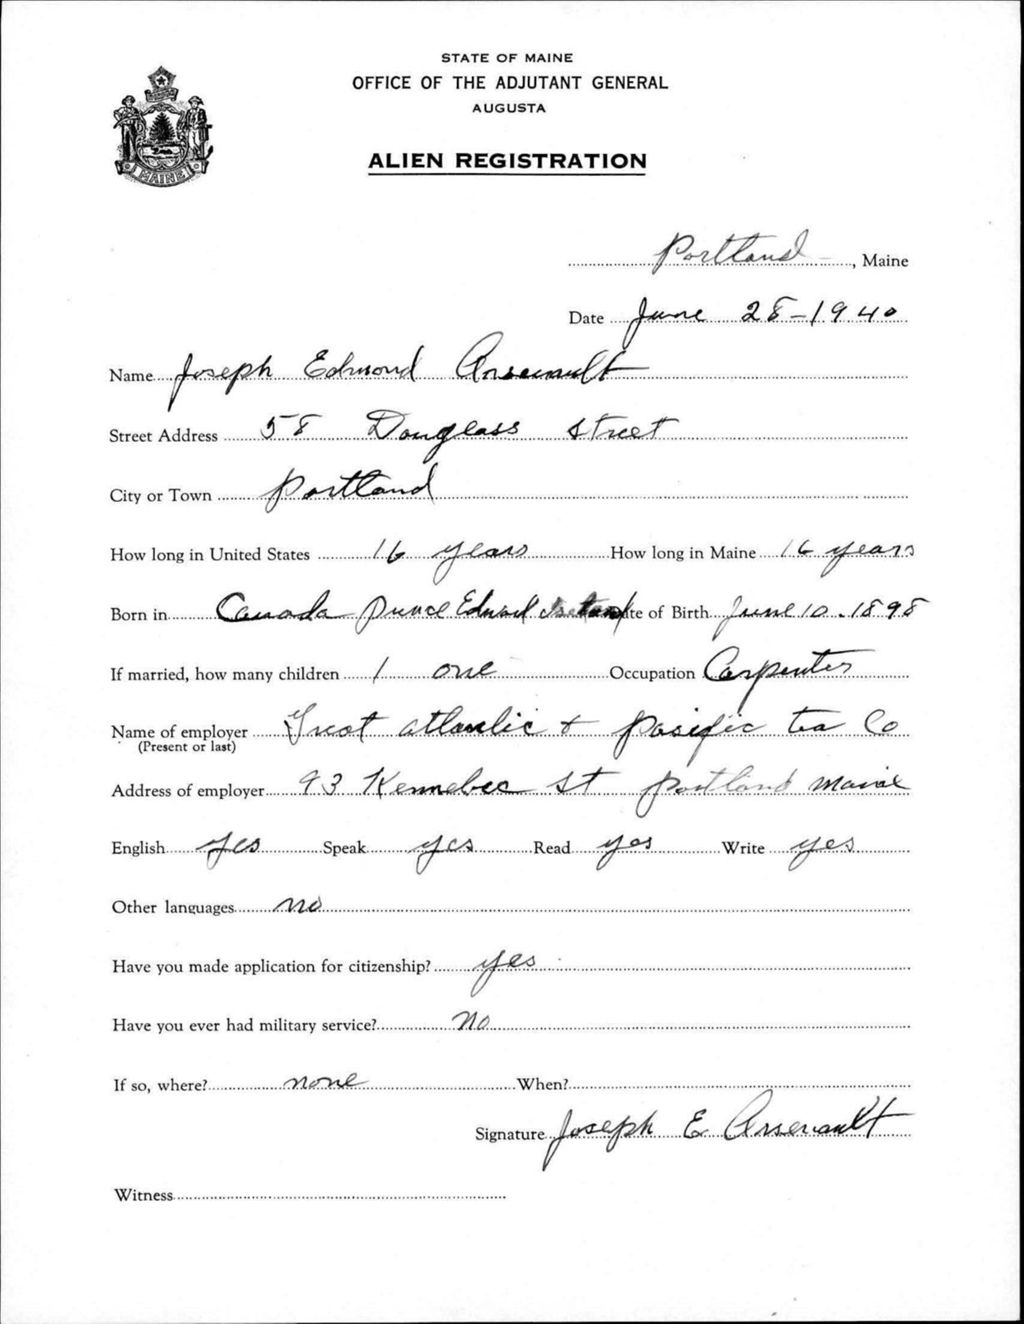 STATE OF MAINE
OFFICE OF THE ADJUTANT GENERAL
AUGUSTA
ALIEN REGISTRATION
MAINE
Portland, Maine
Date June 28-1940
Name Joseph Edmond Arsenault
Street Address 58 Douglass Street
City or Town Portland
How long in United States 16 years How long in Maine 16 years
Born in Canada Prince Edward Island Date of Birth June 10. 1898
If married, how many children 1 one Occupation Carpenter
Name of employer Great atlantic + pasific tea Co
(Present or last)
Address of employer 93 Kennebec St portland maine
English yes Speak yes Read yes Write yes
Other languages no
Have you made application for citizenship? yes
Have you ever had military service? No
If so, where? none When?
Signature Joseph E Arsenault
Witness